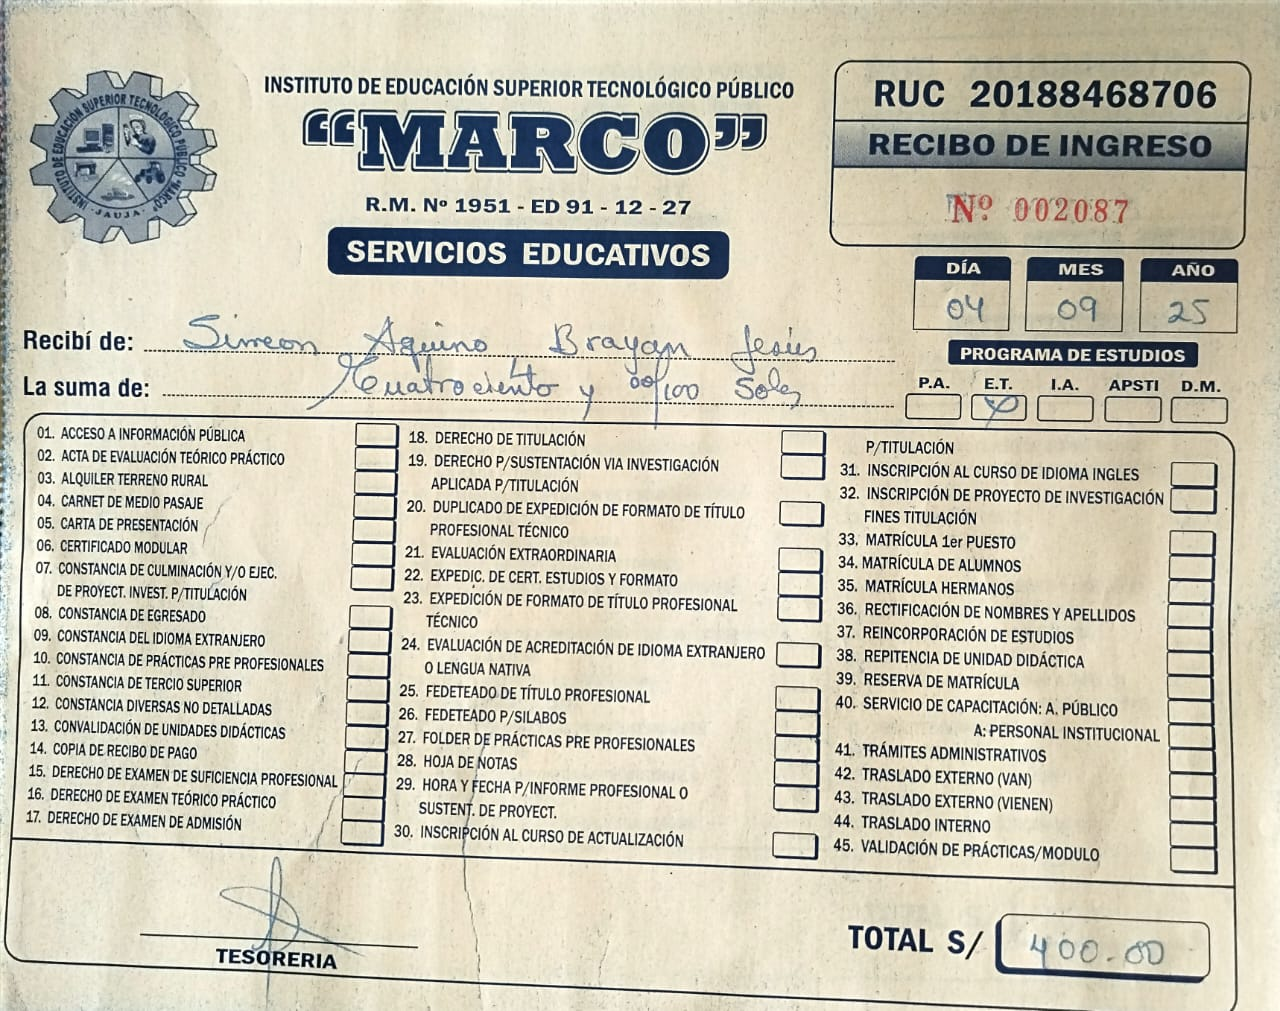 INSTITUTO DE EDUCACIÓN SUPERIOR TECNOLÓGICO PÚBLICO
"MARCO"
R.M. Nº 1951 - ED 91 - 12 - 27
SERVICIOS EDUCATIVOS
INSTITUTO DE EDUCACIÓN SUPERIOR TECNOLÓGICO PÚBLICO "MARCO"
- JAUJA -
RUC 20188468706
RECIBO DE INGRESO
Nº 002087
DÍA MES AÑO
04 09 25
Recibí de: Simeon Aquino Brayan Jesús
La suma de: Cuatrociento y 00/100 Soles
PROGRAMA DE ESTUDIOS
P.A. E.T. I.A. APSTI D.M.
01. ACCESO A INFORMACIÓN PÚBLICA
02. ACTA DE EVALUACIÓN TEÓRICO PRÁCTICO
03. ALQUILER TERRENO RURAL
04. CARNET DE MEDIO PASAJE
05. CARTA DE PRESENTACIÓN
06. CERTIFICADO MODULAR
07. CONSTANCIA DE CULMINACIÓN Y/O EJEC.
DE PROYECT. INVEST. P/TITULACIÓN
08. CONSTANCIA DE EGRESADO
09. CONSTANCIA DEL IDIOMA EXTRANJERO
10. CONSTANCIA DE PRÁCTICAS PRE PROFESIONALES
11. CONSTANCIA DE TERCIO SUPERIOR
12. CONSTANCIA DIVERSAS NO DETALLADAS
13. CONVALIDACIÓN DE UNIDADES DIDÁCTICAS
14. COPIA DE RECIBO DE PAGO
15. DERECHO DE EXAMEN DE SUFICIENCIA PROFESIONAL
16. DERECHO DE EXAMEN TEÓRICO PRÁCTICO
17. DERECHO DE EXAMEN DE ADMISIÓN
18. DERECHO DE TITULACIÓN
19. DERECHO P/SUSTENTACIÓN VIA INVESTIGACIÓN
APLICADA P/TITULACIÓN
20. DUPLICADO DE EXPEDICIÓN DE FORMATO DE TÍTULO
PROFESIONAL TÉCNICO
21. EVALUACIÓN EXTRAORDINARIA
22. EXPEDIC. DE CERT. ESTUDIOS Y FORMATO
23. EXPEDICIÓN DE FORMATO DE TÍTULO PROFESIONAL
TÉCNICO
24. EVALUACIÓN DE ACREDITACIÓN DE IDIOMA EXTRANJERO
O LENGUA NATIVA
25. FEDETEADO DE TÍTULO PROFESIONAL
26. FEDETEADO P/SILABOS
27. FOLDER DE PRÁCTICAS PRE PROFESIONALES
28. HOJA DE NOTAS
29. HORA Y FECHA P/INFORME PROFESIONAL O
SUSTENT. DE PROYECT.
30. INSCRIPCIÓN AL CURSO DE ACTUALIZACIÓN
P/TITULACIÓN
31. INSCRIPCIÓN AL CURSO DE IDIOMA INGLES
32. INSCRIPCIÓN DE PROYECTO DE INVESTIGACIÓN
FINES TITULACIÓN
33. MATRÍCULA 1er PUESTO
34. MATRÍCULA DE ALUMNOS
35. MATRÍCULA HERMANOS
36. RECTIFICACIÓN DE NOMBRES Y APELLIDOS
37. REINCORPORACIÓN DE ESTUDIOS
38. REPITENCIA DE UNIDAD DIDÁCTICA
39. RESERVA DE MATRÍCULA
40. SERVICIO DE CAPACITACIÓN: A. PÚBLICO
A: PERSONAL INSTITUCIONAL
41. TRÁMITES ADMINISTRATIVOS
42. TRASLADO EXTERNO (VAN)
43. TRASLADO EXTERNO (VIENEN)
44. TRASLADO INTERNO
45. VALIDACIÓN DE PRÁCTICAS/MODULO
TESORERIA
TOTAL S/ 400.00